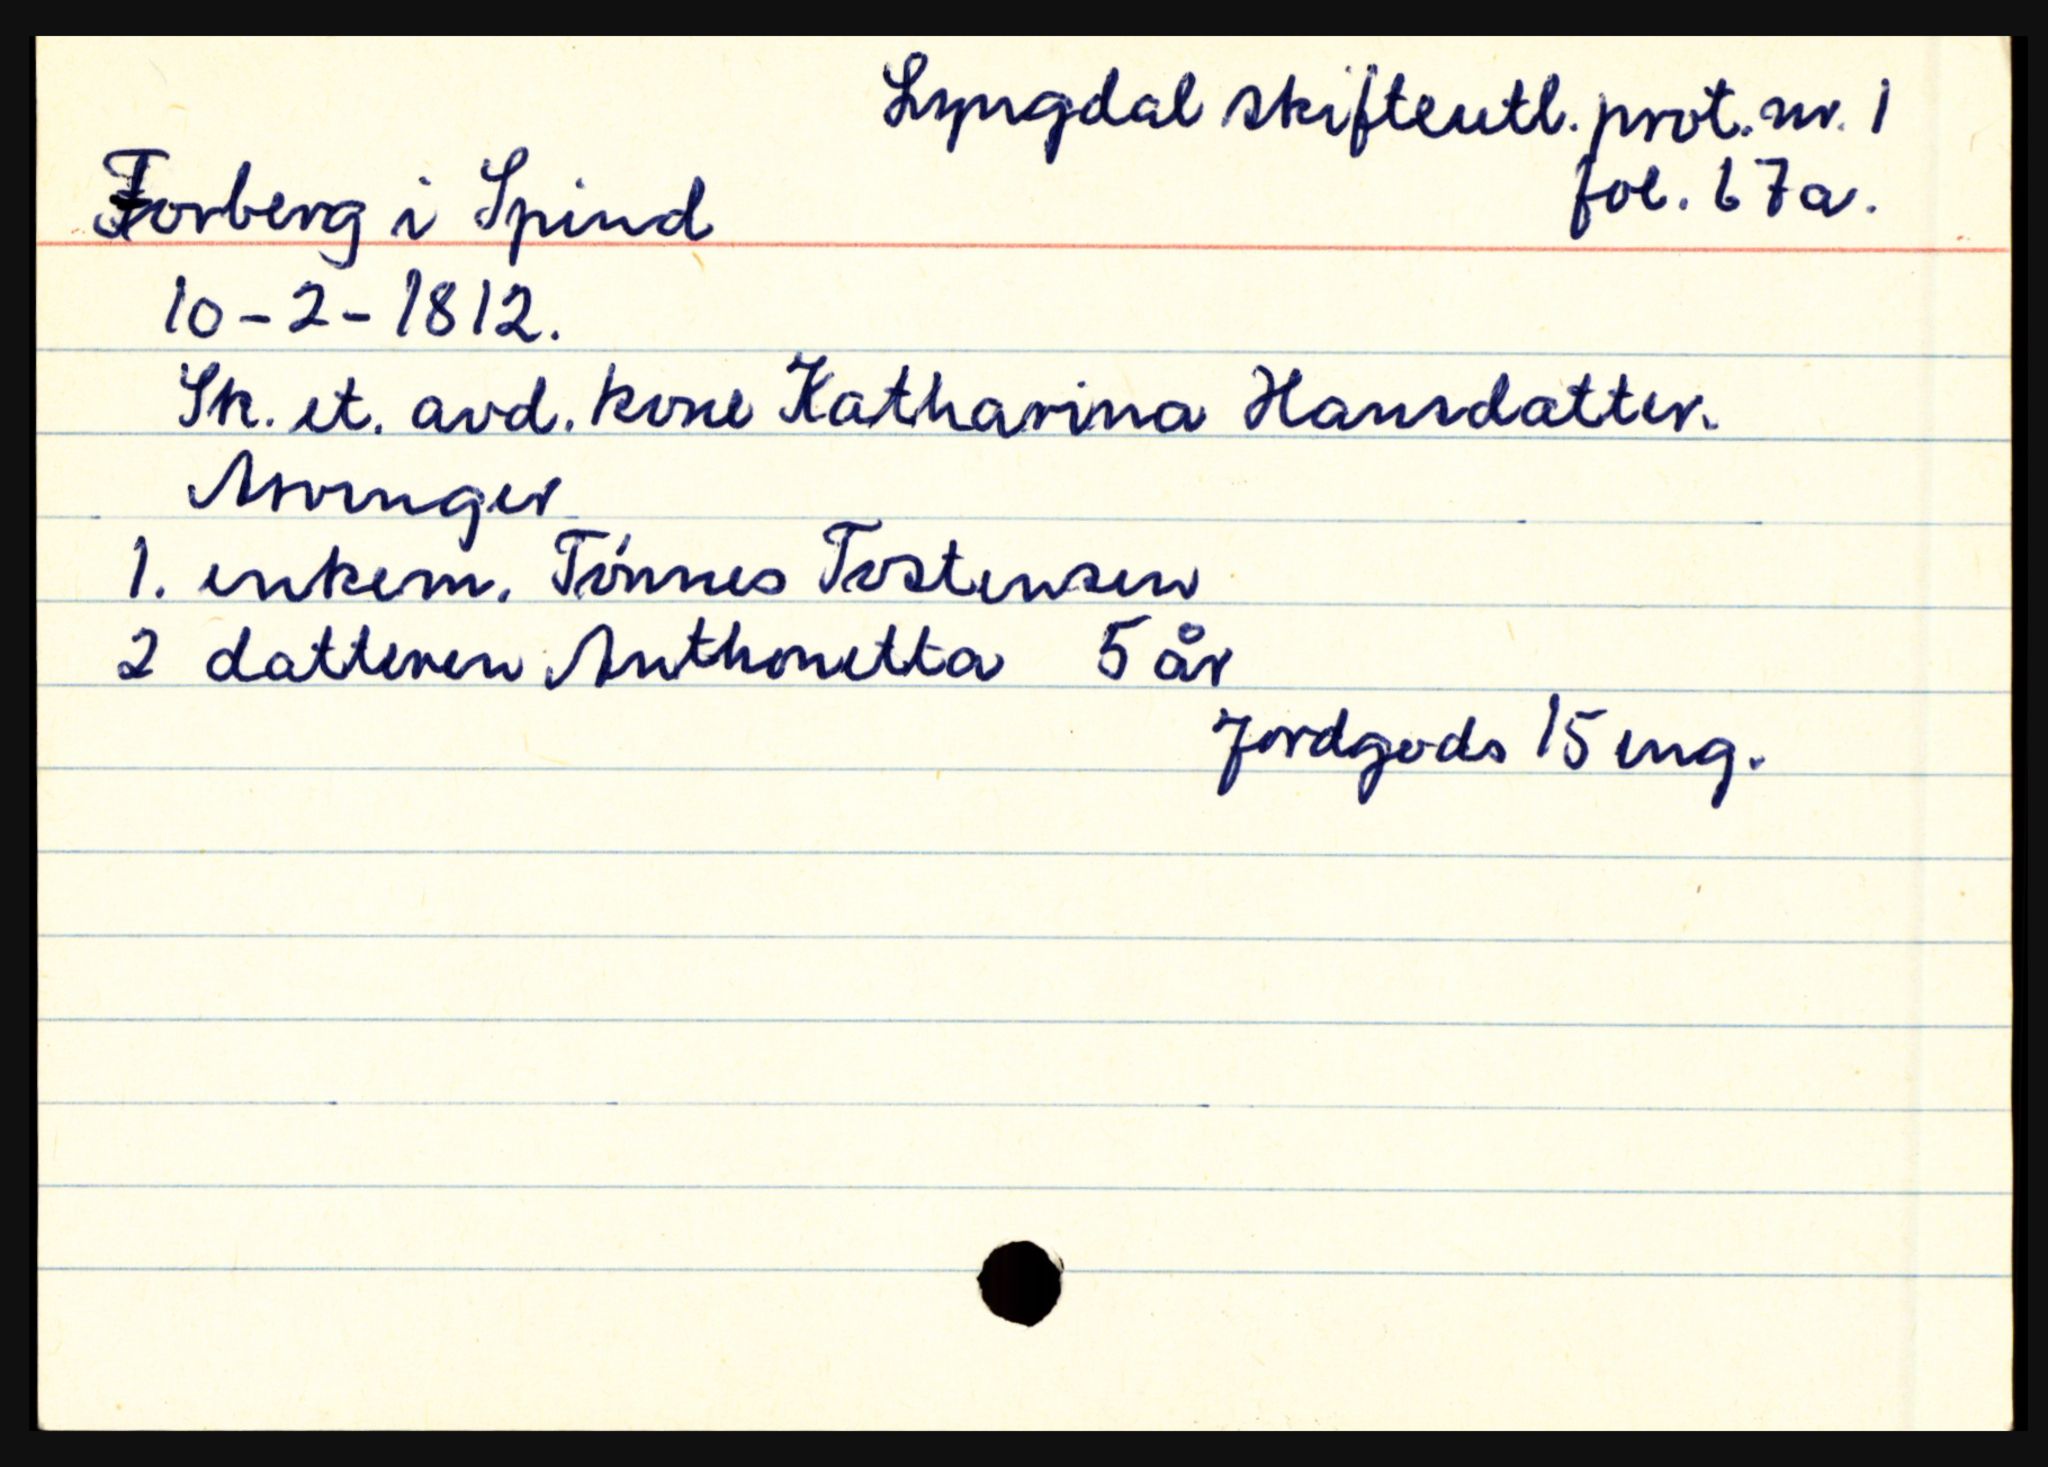 Lyngdal skifteutl. prot. nr. 1
fol. 67a.
Forberg i Spind
10-2-1812.
Sk. et. avd. kone Katharina Hansdatter.
Arvinger
1. enkem. Tónnes Tostensen
2 datteren Anthonetta 5 år
Jordgods 15 eng.